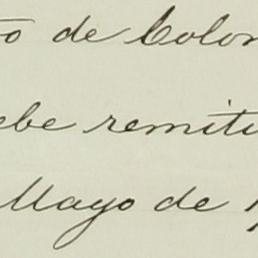 to de Colon
ebe remiti
Mayo de 1